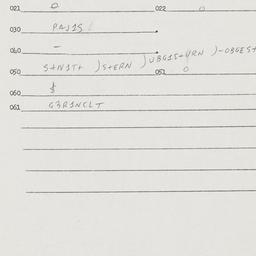 021 0 022 0
030 PAJ1S
040 -
050 S+N1T+ )S+ERN )UBG1S+URN )-OBGES+
051 0
060 $
061 G3R1NCLT